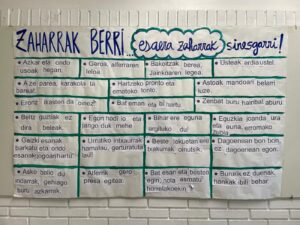 ZAHARRAK BERRI...
esaera zaharrak sinesgarri!
• Azkar eta ondo
usoak hegan.
• Geroa, alferraren
leloa.
• Bakoitzak berea,
Jainkoaren legea.
• Usteak erdia ustel.
• Aize parea, karakola ta
barea.
• Hartzeko pronto eta
emoteko tonto.
• Astoak mandoari belarri
luze.
• Eroriz ikasten da oinez.
• Bat eman eta bi hartu
• Zenbat buru hainbat aburu.
• Beltz guztiak ez
dira beleak.
• Egun hodi io eta
jango duk mehe
• Bihar ere eguna
argituko du!
• Eguzkia joanda ura
eta auma, erromako
zubia.
• Gaizki esanak
barkatu eta ondo
esanak gogoan hartu!
• Urrutiko intxaurrak
hamalau, gerturatuta
lau!
• Beste lekuetan ere
txakurrak oinutsik.
• Dagoenean bon bon, ez
dagoenean egon.
• Asko balio du
indarrak, gehiago
buru azkarrak.
• Alferrik gero
presa egitea.
• Bat esan eta bestea
egin, nola asmatu
horrelakoekin
• Bururik ez duenak,
hankak ibili behar.